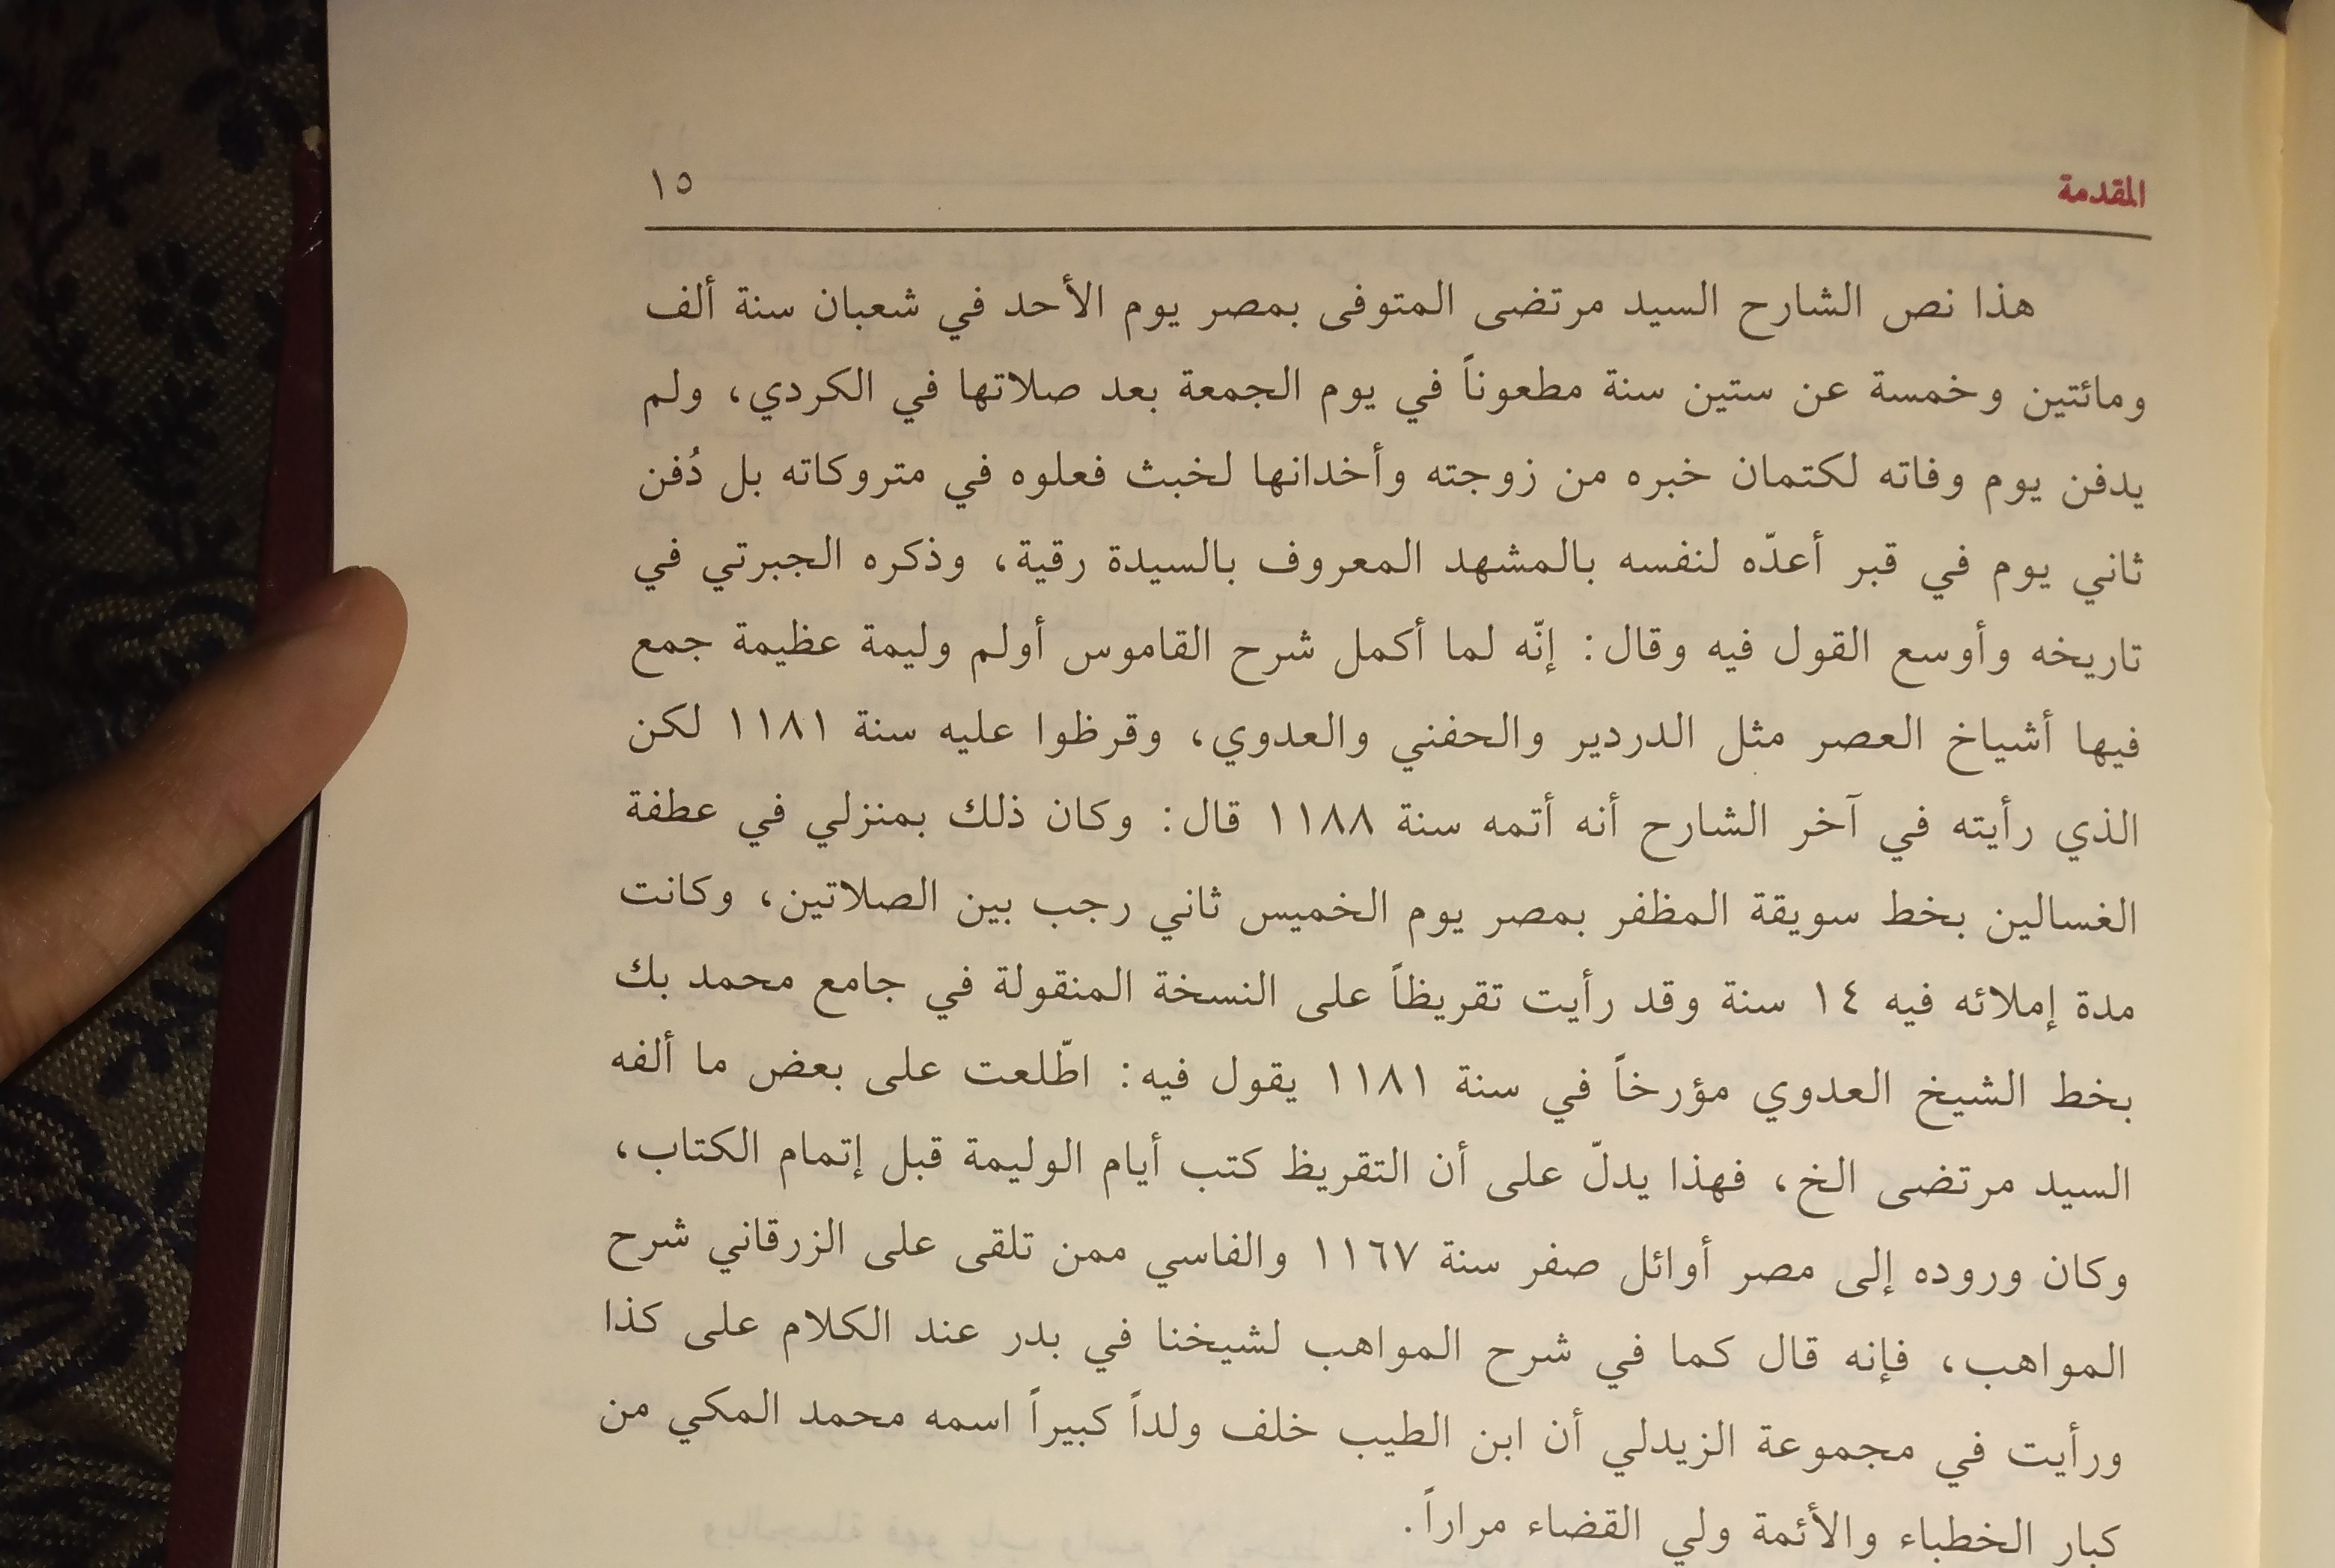 المقدمة ١٥
هذا نص الشارح السيد مرتضى المتوفى بمصر يوم الأحد في شعبان سنة ألف
ومائتين وخمسة عن ستين سنة مطعوناً في يوم الجمعة بعد صلاتها في الكردي، ولم
يدفن يوم وفاته لكتمان خبره من زوجته وأخدانها لخبث فعلوه في متروكاته بل دُفن
ثاني يوم في قبر أعدّه لنفسه بالمشهد المعروف بالسيدة رقية، وذكره الجبرتي في
تاريخه وأوسع القول فيه وقال: إنّه لما أكمل شرح القاموس أولم وليمة عظيمة جمع
فيها أشياخ العصر مثل الدردير والحفني والعدوي، وقرظوا عليه سنة ١١٨١ لكن
الذي رأيته في آخر الشارح أنه أتمه سنة ١١٨٨ قال: وكان ذلك بمنزلي في عطفة
الغسالين بخط سويقة المظفر بمصر يوم الخميس ثاني رجب بين الصلاتين، وكانت
مدة إملائه فيه ١٤ سنة وقد رأيت تقريظاً على النسخة المنقولة في جامع محمد بك
بخط الشيخ العدوي مؤرخاً في سنة ١١٨١ يقول فيه: اطّلعت على بعض ما ألفه
السيد مرتضى الخ، فهذا يدلّ على أن التقريظ كتب أيام الوليمة قبل إتمام الكتاب،
وكان وروده إلى مصر أوائل صفر سنة ١١٦٧ والفاسي ممن تلقى على الزرقاني شرح
المواهب، فإنه قال كما في شرح المواهب لشيخنا في بدر عند الكلام على كذا
ورأيت في مجموعة الزيدلي أن ابن الطيب خلف ولداً كبيراً اسمه محمد المكي من
كبار الخطباء والأئمة ولي القضاء مراراً.